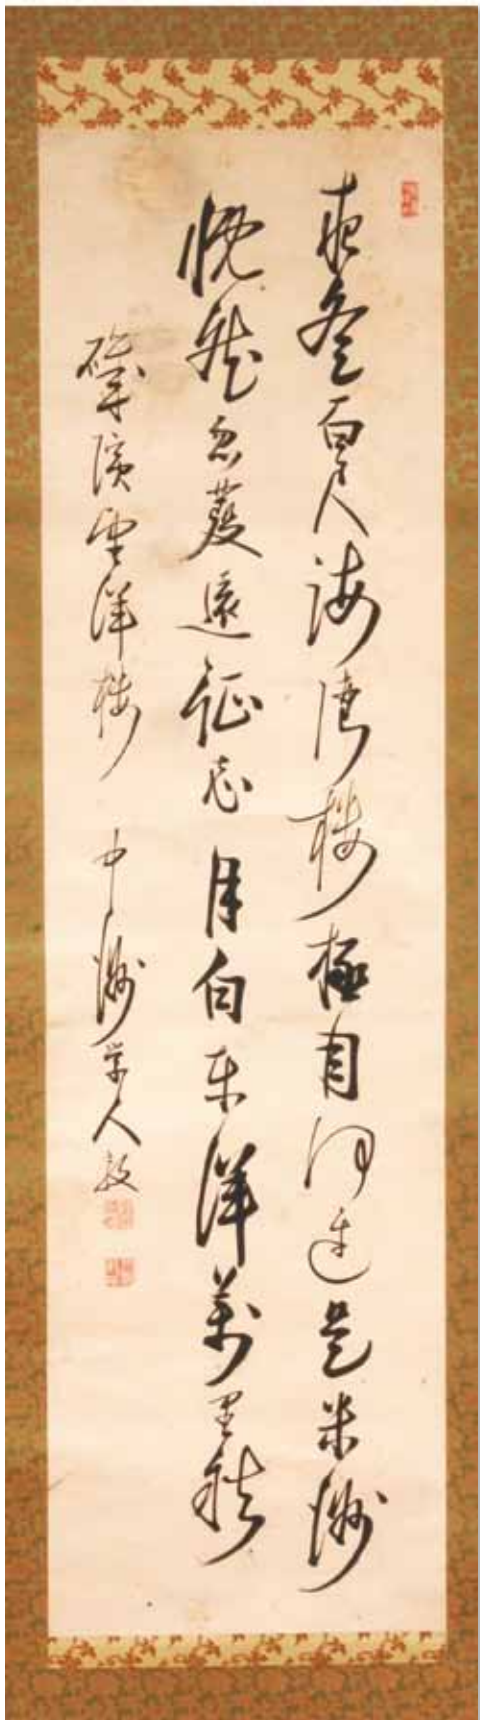 夜登百尺海湾樓極目何邊是米洲
慨然忽發遠征志月白東洋萬里秋
磯濱望洋樓 中洲学人毅